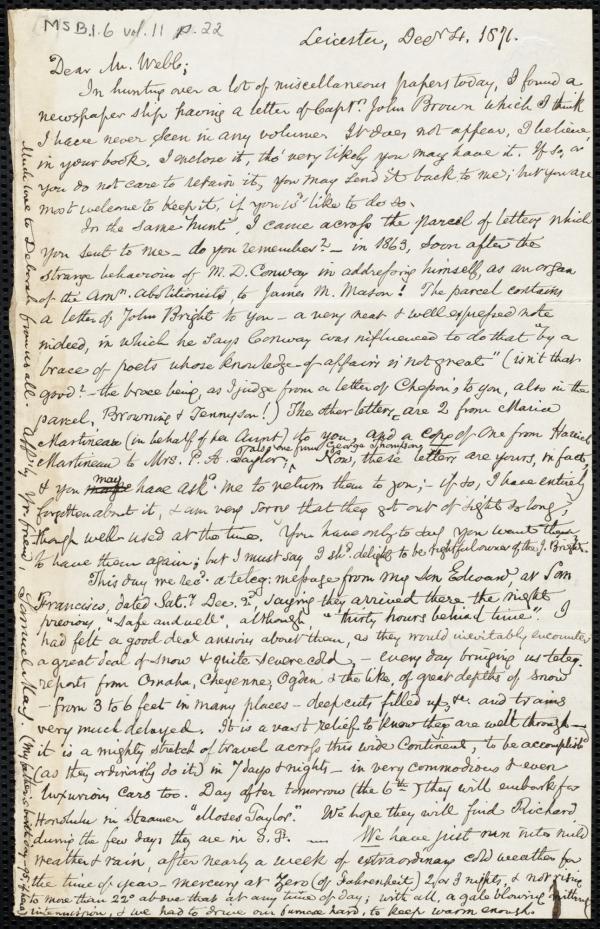 MS B.1.6 vol. 11 p. 22
Leicester, Decr. 4. 1871.
Dear Mr. Webb;
In hunting over a lot of miscellaneous papers today, I found a
newspaper slip having a letter of Capt. John Brown which I think
I have never seen in any volume. It does not appear, I believe,
in your book. I enclose it, tho' very likely you may have it. If so, or
you do not care to retain it, you may send it back to me; but you are
most welcome to keep it, if you wd. like to do so.
In the same "hunt", I came across the parcel of letters which
you sent to me – do you remember? – in 1863, soon after the
strange behaviour of M. D. Conway in addressing himself, as an organ
of the Amn. Abolitionists, to James M. Mason! The parcel contains
a letter of John Bright to you – a very neat & well expressed note
indeed, in which he says Conway was influenced to do that "by a
brace of poets whose knowledge of affairs is not great" (isn't that
good? – the brace being, as I judge from a letter of Chesson's to you, also in the
parcel, Browning & Tennyson!) The other letters are 2 from Maria
Martineau (in behalf of her Aunt) to you, and a copy of one from Harriet
Martineau to Mrs. P. A. Taylor; Also one from George Thompson. Now, these letters are yours, in fact,
& you may have askd. me to return them to you; – if so, I have entirely
forgotten about it, & am very sorry that they got out of sight so long,
though well used at the time. You have only to say you want them
to have them again; but I must say I shd. delight to be rightful owner of the J. Bright.
This day we recd. a teleg: message from my Son Edward, at San
Francisco, dated Saty. Dec. 2d, saying they arrived there the night
previous, "safe and well", although "thirty hours behind time". I
had felt a good deal anxious about them, as they would inevitably encounter
a great deal of snow & quite severe cold, – every day bringing us teleg.
reports from Omaha, Cheyenne, Ogden & the like, of great depths of snow
– from 3 to 6 feet in many places – deep cuts filled up, &c. and trains
very much delayed. It is a vast relief to know they are well through –
it is a mighty stretch of travel across this wide Continent, to be accomplishd
(as they ordinarily do it) in 7 days & nights – in very commodious & even
luxurious cars too. Day after tomorrow (the 6th) they will embark for
Honolulu in Steamer "Moses Taylor." We hope they will find Richard
during the few days they are in S.F. — We have just run into mild
weather & rain, after nearly a week of extraordinary cold weather for
the time of year – mercury at Zero (of Fahrenheit) 2 or 3 nights, & not rising
to more than 22° above that at any time of day; with all, a gale blowing without
intermission, & we had to drive our furnace hard, to keep warm enough.
Much love to Deborah from us all. Affly. Yr. friend, Samuel May (My father's birthday